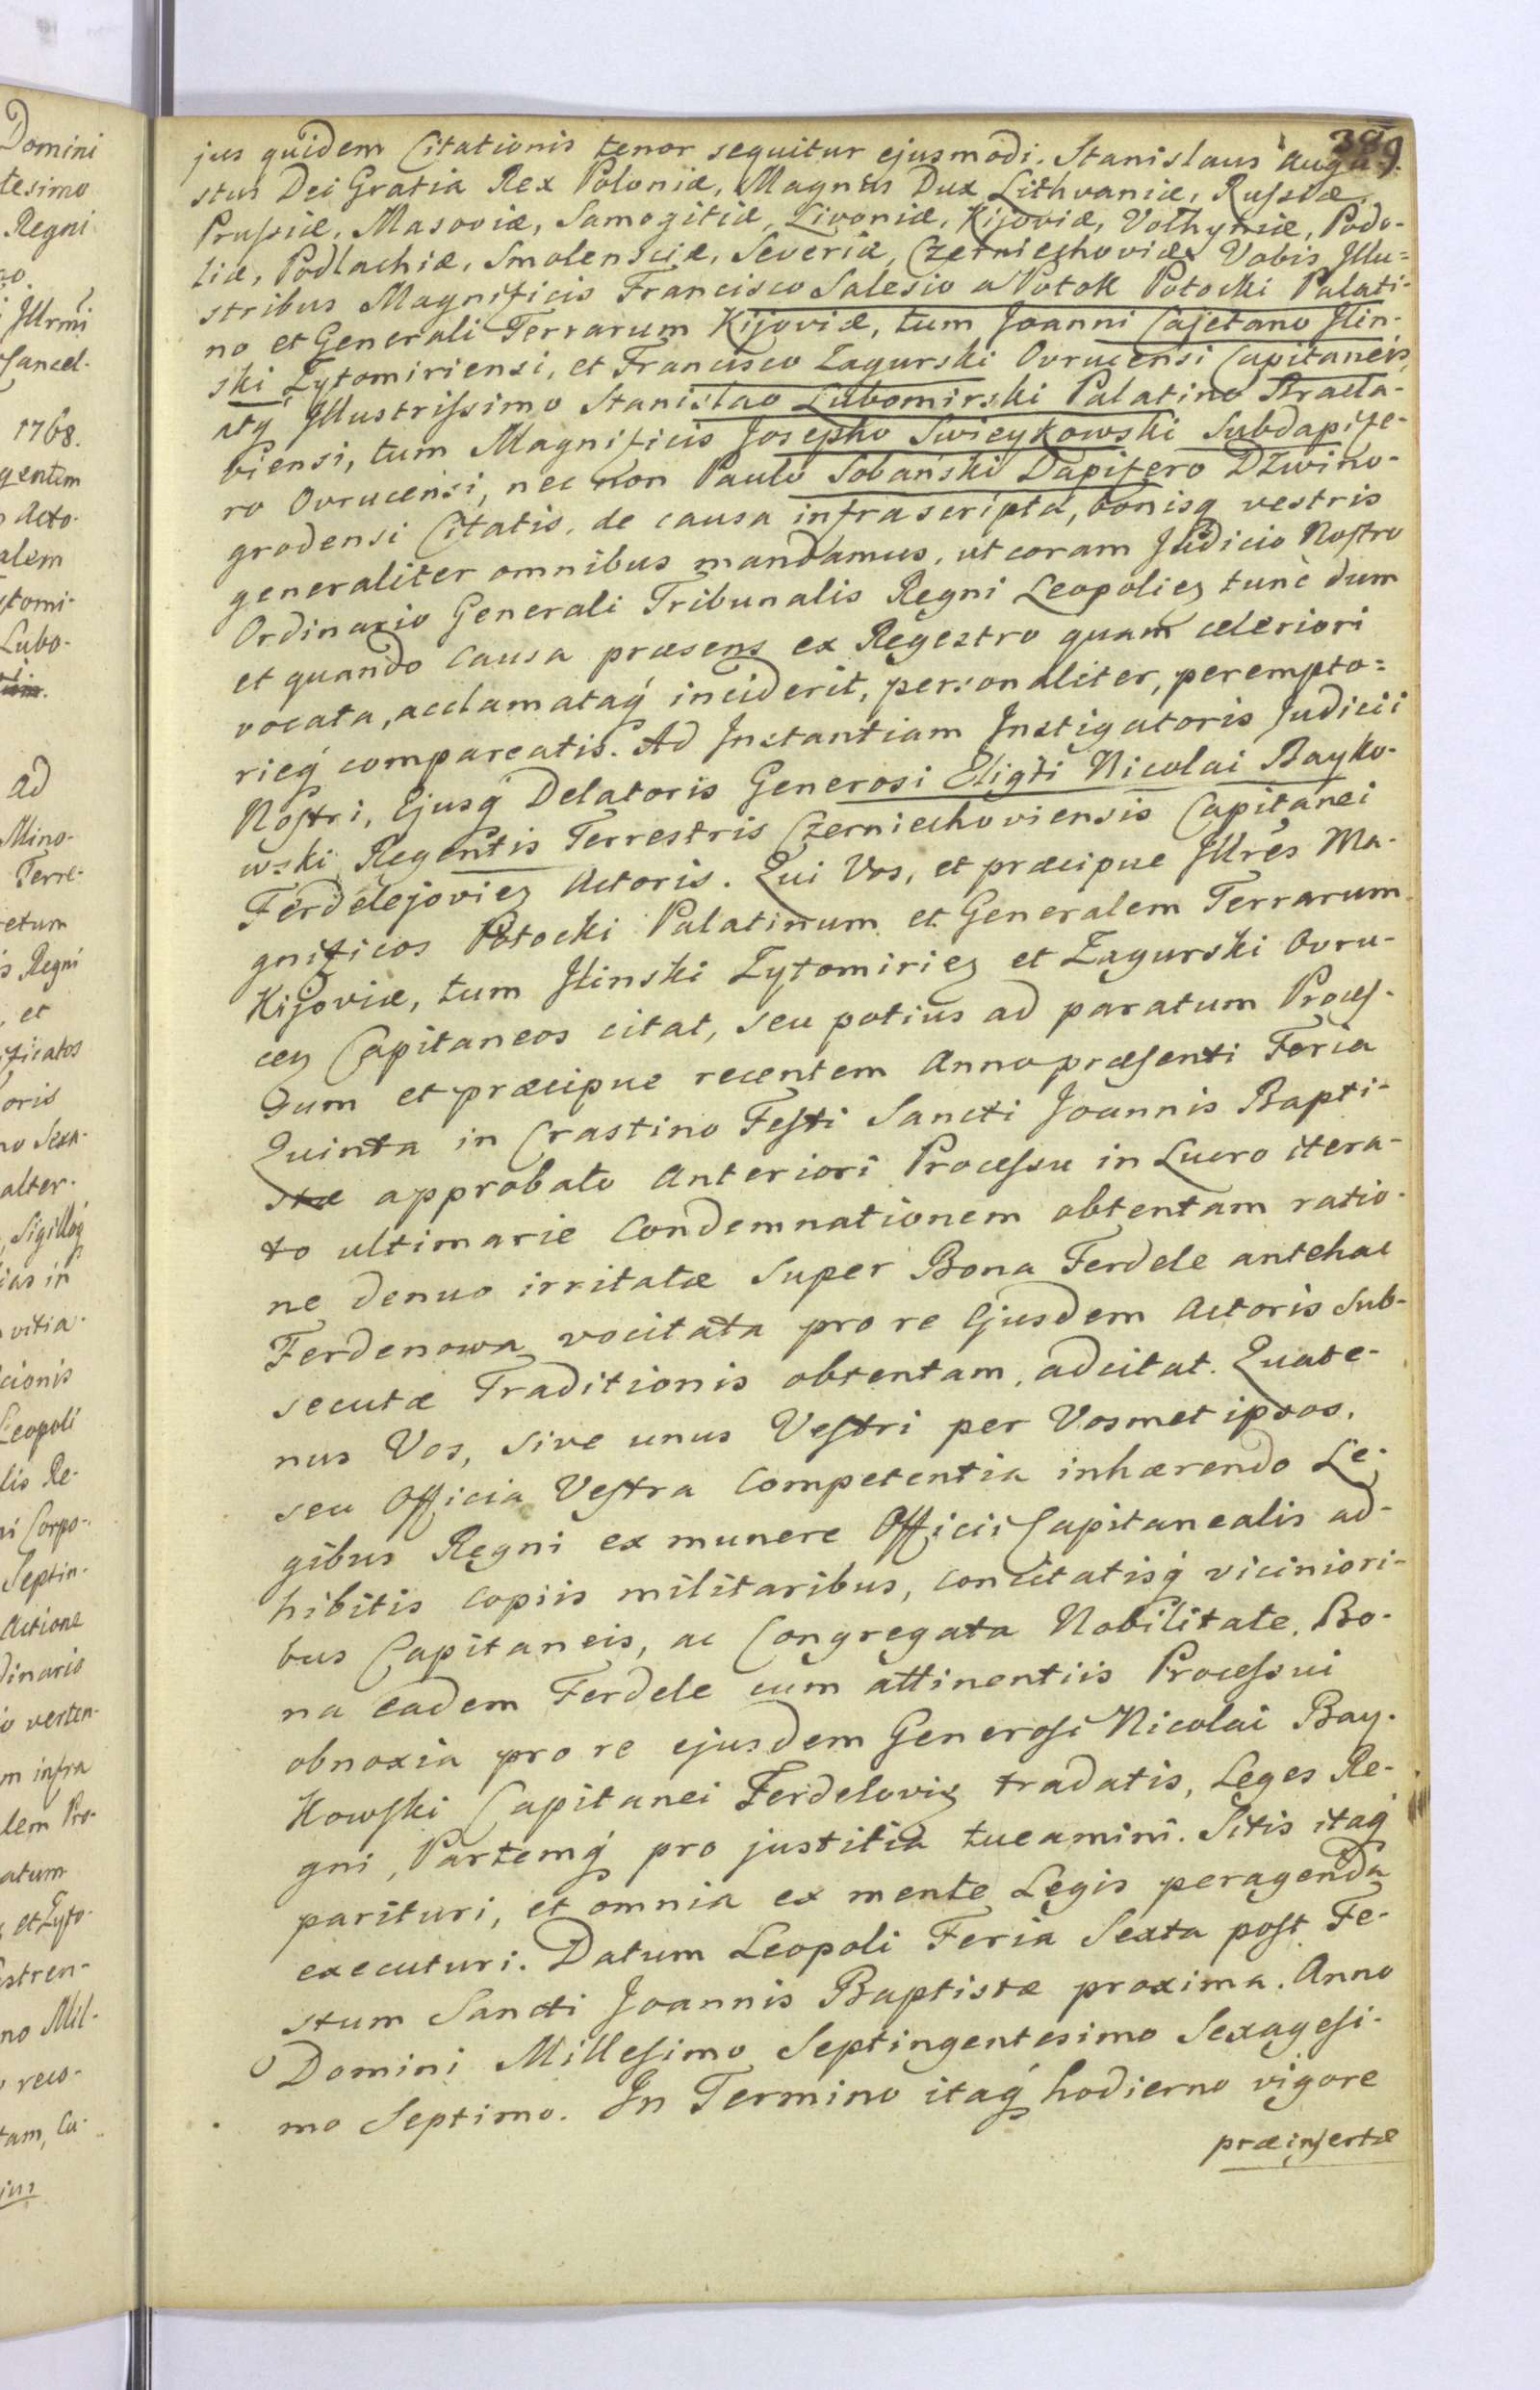 Domini
tesimo
Regni
Illrmi
Cancel-
1768.
gentem
Acto-
alem
ytomi-
Lubo-
Ad
Mino-
Terre-
retum
s Regni
, et
ificatos
oris
no Sexa-
alter-
, Sigillóq́
ias in
vitia-
cionis
Leopoli
lis Re-
ni Corpo-
Septin-
Actione
dinario
io verten-
m infra
lem Pro-
atum
et Zyto-
stren-
no Mil-
reco-
tam, Cu-
jus
389.
jus quidem Citationis tenor sequitur ejusmodi. Stanislaus Augu-
stus Dei Gratia Rex Poloniæ, Magnus Dux Lithvaniæ, Russiæ,
Prussiæ, Masoviæ, Samogitiæ, Livoniæ, Kijoviæ, Volhyniæ, Podo-
liæ, Podlachiæ, Smolensciæ, Severiæ, Czerniechoviæq. Vobis Illu=
stribus Magnificis Francisco Salesio a Potok Potocki Palati-
no et Generali Terrarum Kijoviæ, tum Joanni Cajetano Ilin-
ski Zytomiriensi, et Francisco Zagurski Ovrucensi Capitaneis,
atq́ Illustrissimo Stanislao Lubomirski Palatino Bracla-
viensi, tum Magnificis Josepho Swieykowski Subdapife-
ro Ovrucensi, nec non Paulo Sobański Dapifero Dzwino-
grodensi Citatis, de causa infrascripta, bonisq vestris
generaliter omnibus mandamus, ut coram Judicio Nostro
Ordinario Generali Tribunalis Regni Leopolien tunc dum
et quando causa præsens ex Regestro quam celeriori
vocata, acclamataq́ inciderit, personaliter, perempto=
rieq́ compareatis. Ad Instantiam Instigatoris Judicii
Nostri, Ejusq́ Delatoris Generosi Eligii Nicolai Bayko-
wski Regentis Terrestris Czerniechoviensis Capitanei
Ferdelejovien Actoris. Qui Vos, et præcipue Illres Ma-
gnificos Potocki Palatinum et Generalem Terrarum
Kijoviæ, tum Ilinski Zytomirien et Zagurski Ovru-
cen Capitaneos citat, seu potius ad paratum Proces-
sum et præcipue recentem Anno præsenti Feria
Quinta in Crastino Festi Sancti Joannis Bapti-
stæ approbato Anteriori Processu in Lucro itera-
to ultimarie Condemnationem obtentam ratio-
ne denuo irritatæ super Bona Ferdele antehac
Ferdenowa vocitata pro re Ejusdem Actoris sub-
secutæ Traditionis obtentam, adcitat. Quate-
nus Vos, sive unus Vestri per Vosmet ipsos,
seu Officia Vestra Competentia inhærendo Le-
gibus Regni ex munere Officii Capitanealis ad-
hibitis copiis militaribus, concitatisq́ viciniori-
bus Capitaneis, ac Congregata Nobilitate, Bo-
na eadem Ferdele cum attinentiis Processui
obnoxia pro re ejusdem Generosi Nicolai Bay-
kowski Capitanei Ferdelovien tradatis, Leges Re-
gni, Partemq́ pro justitia tueamini. Sitis itaq́
parituri, et omnia ex mente Legis peragenda
executuri. Datum Leopoli Feria Sexta post Fe-
stum Sancti Joannis Baptistæ proxima. Anno
Domini Millesimo Septingentesimo Sexagesi-
mo Septimo. In Termino itaq́ hodierno vigore
præinsertæ